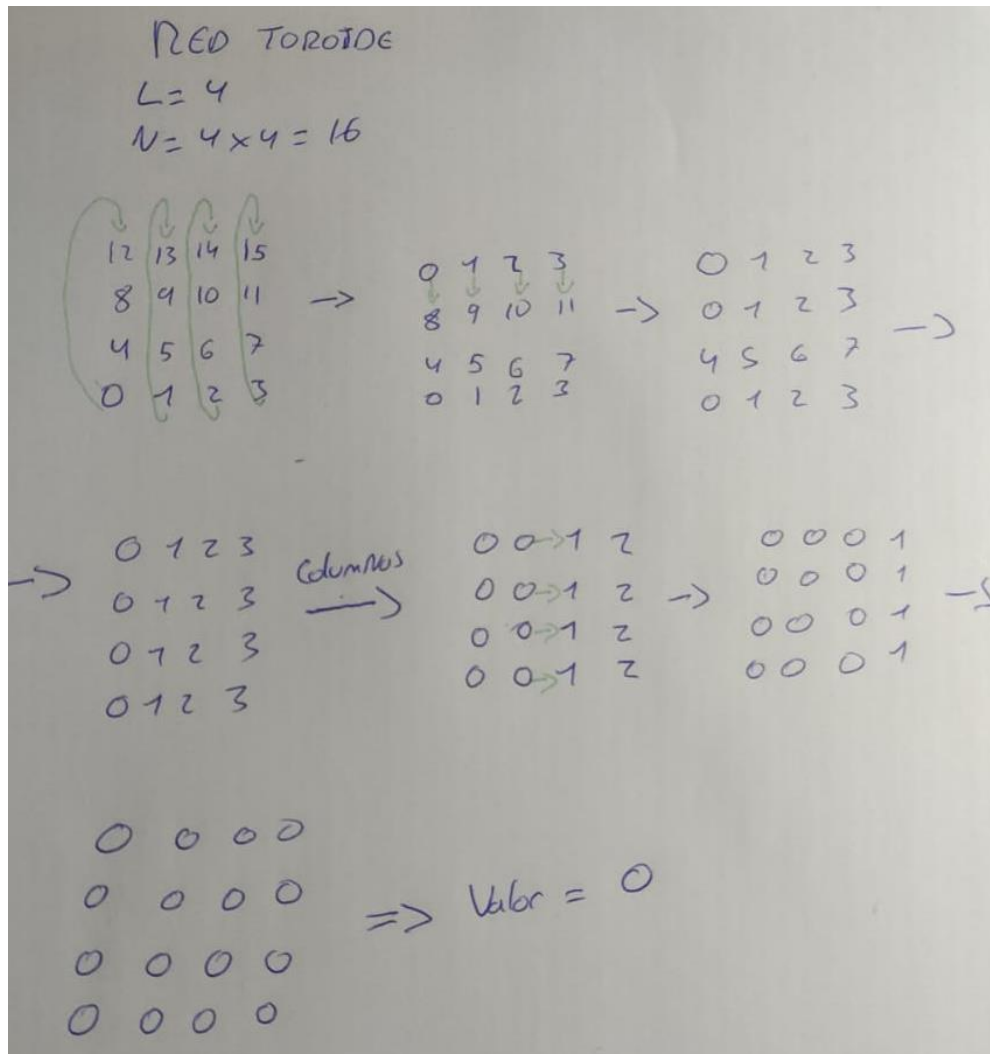 RED TOROIDE
L = 4
N = 4 x 4 = 16
12 13 14 15
8 9 10 11
4 5 6 7
0 1 2 3
->
0 1 2 3
8 9 10 11
4 5 6 7
0 1 2 3
->
0 1 2 3
0 1 2 3
4 5 6 7
0 1 2 3
->
->
0 1 2 3
0 1 2 3
0 1 2 3
0 1 2 3
Columnas
->
0 0 -> 1 2
0 0 -> 1 2
0 0 -> 1 2
0 0 -> 1 2
->
0 0 0 1
0 0 0 1
0 0 0 1
0 0 0 1
->
0 0 0 0
0 0 0 0
0 0 0 0
0 0 0 0
=> Valor = 0